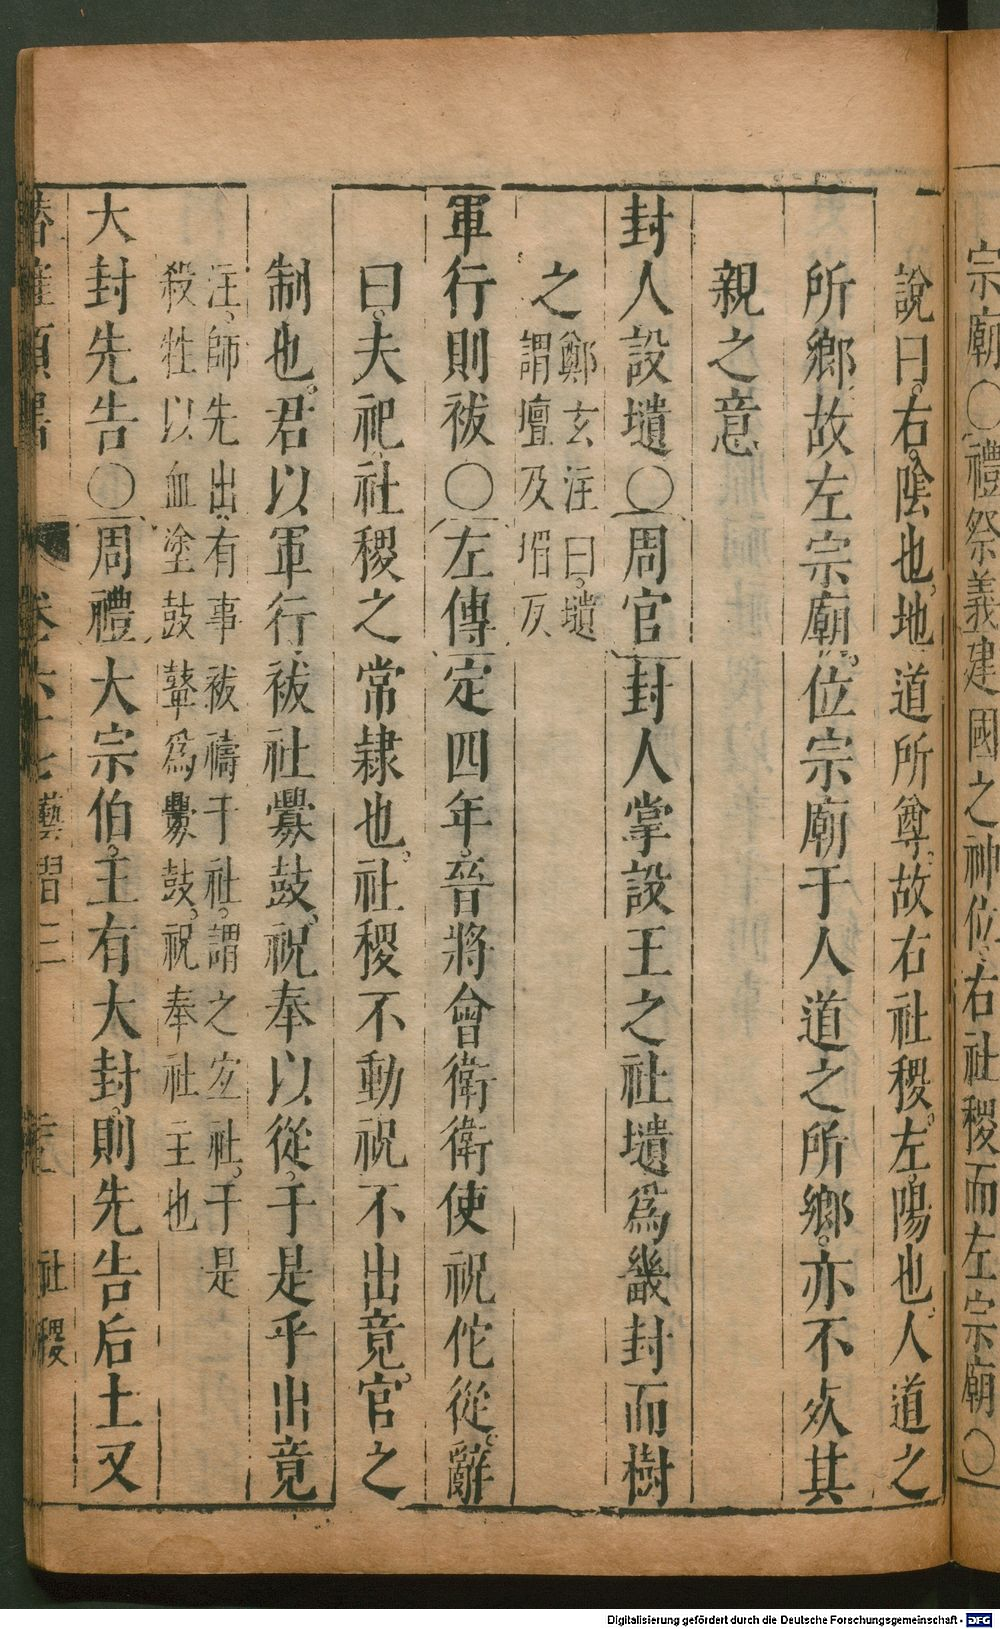 宗廟〇禮祭義建國之神位右社稷而左宗廟〇
說曰右陰也地道所尊故右社稷左陽也人道之
所鄉故左宗廟位宗廟于人道之所鄉亦不其
親之意
封人設壝〇周官封人掌設王之社壝爲畿封而樹
之鄭玄注曰壝
謂壇及堳
軍行則祓〇左傳定四年晉將會衛衛使祝佗從辭
曰夫祀社稷之常隸也社稷不動祝不出竟官之
制也君以軍行祓社釁鼓祝奉以從于是乎出竟
注師先出有事祓禱于社謂之宜社于是
殺牲以血塗鼓鼙爲釁鼓祝奉社主也
大封先告〇周禮大宗伯主有大封則先告后土又
卷六十七 藝習三 社稷
Digitalisierung gefördert durch die Deutsche Forschungsgemeinschaft - DFG